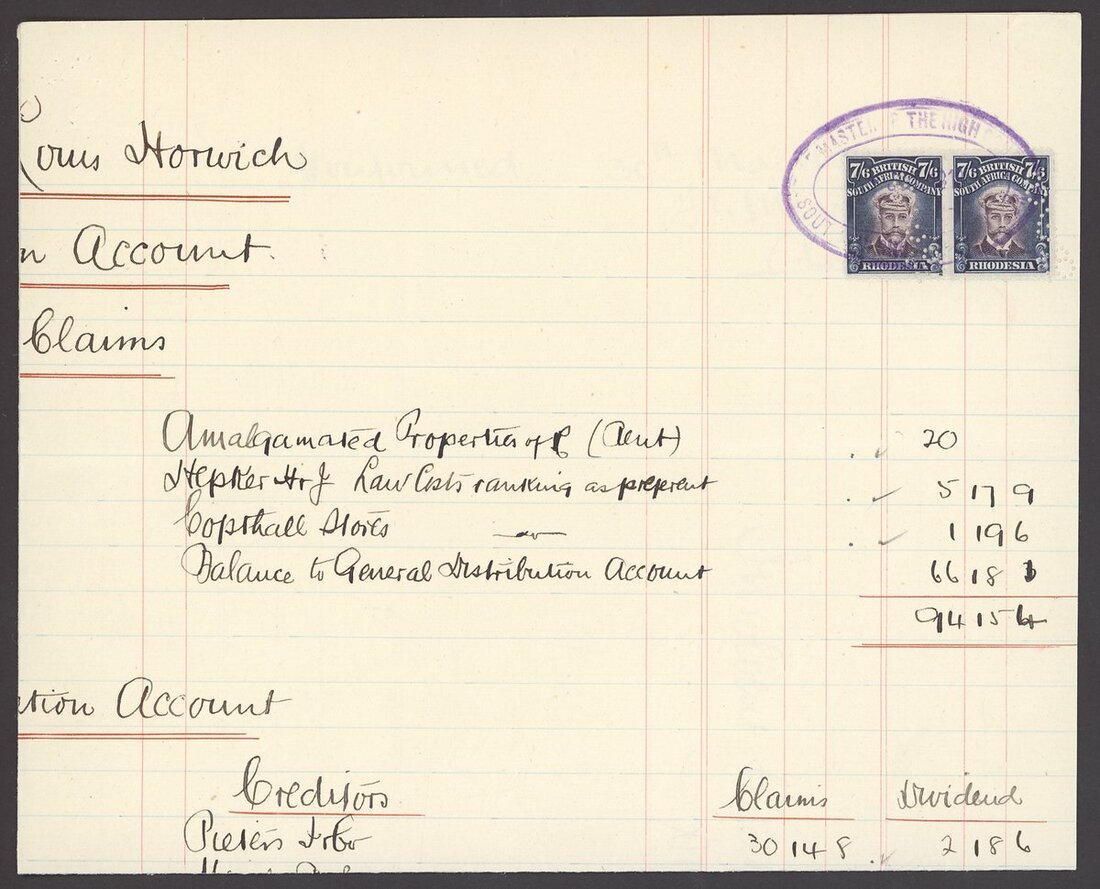 Horwich
Account.
Claims
Amalgamated Properties of R (Rent) 20
Hepker H J Law Costs ranking as preferent 5 17 9
Copthall Stores do 1 19 6
Balance to General Distribution Account 66 18 1
94 15 4
Account
Creditors Claims Dividend
Pieters 30 14 8 2 18 6
MASTER THE HIGH
7/6 BRITISH 7/6
SOUTH AFRICA COMPANY
RHODESIA
7/6 BRITISH 7/6
SOUTH AFRICA COMPANY
RHODESIA